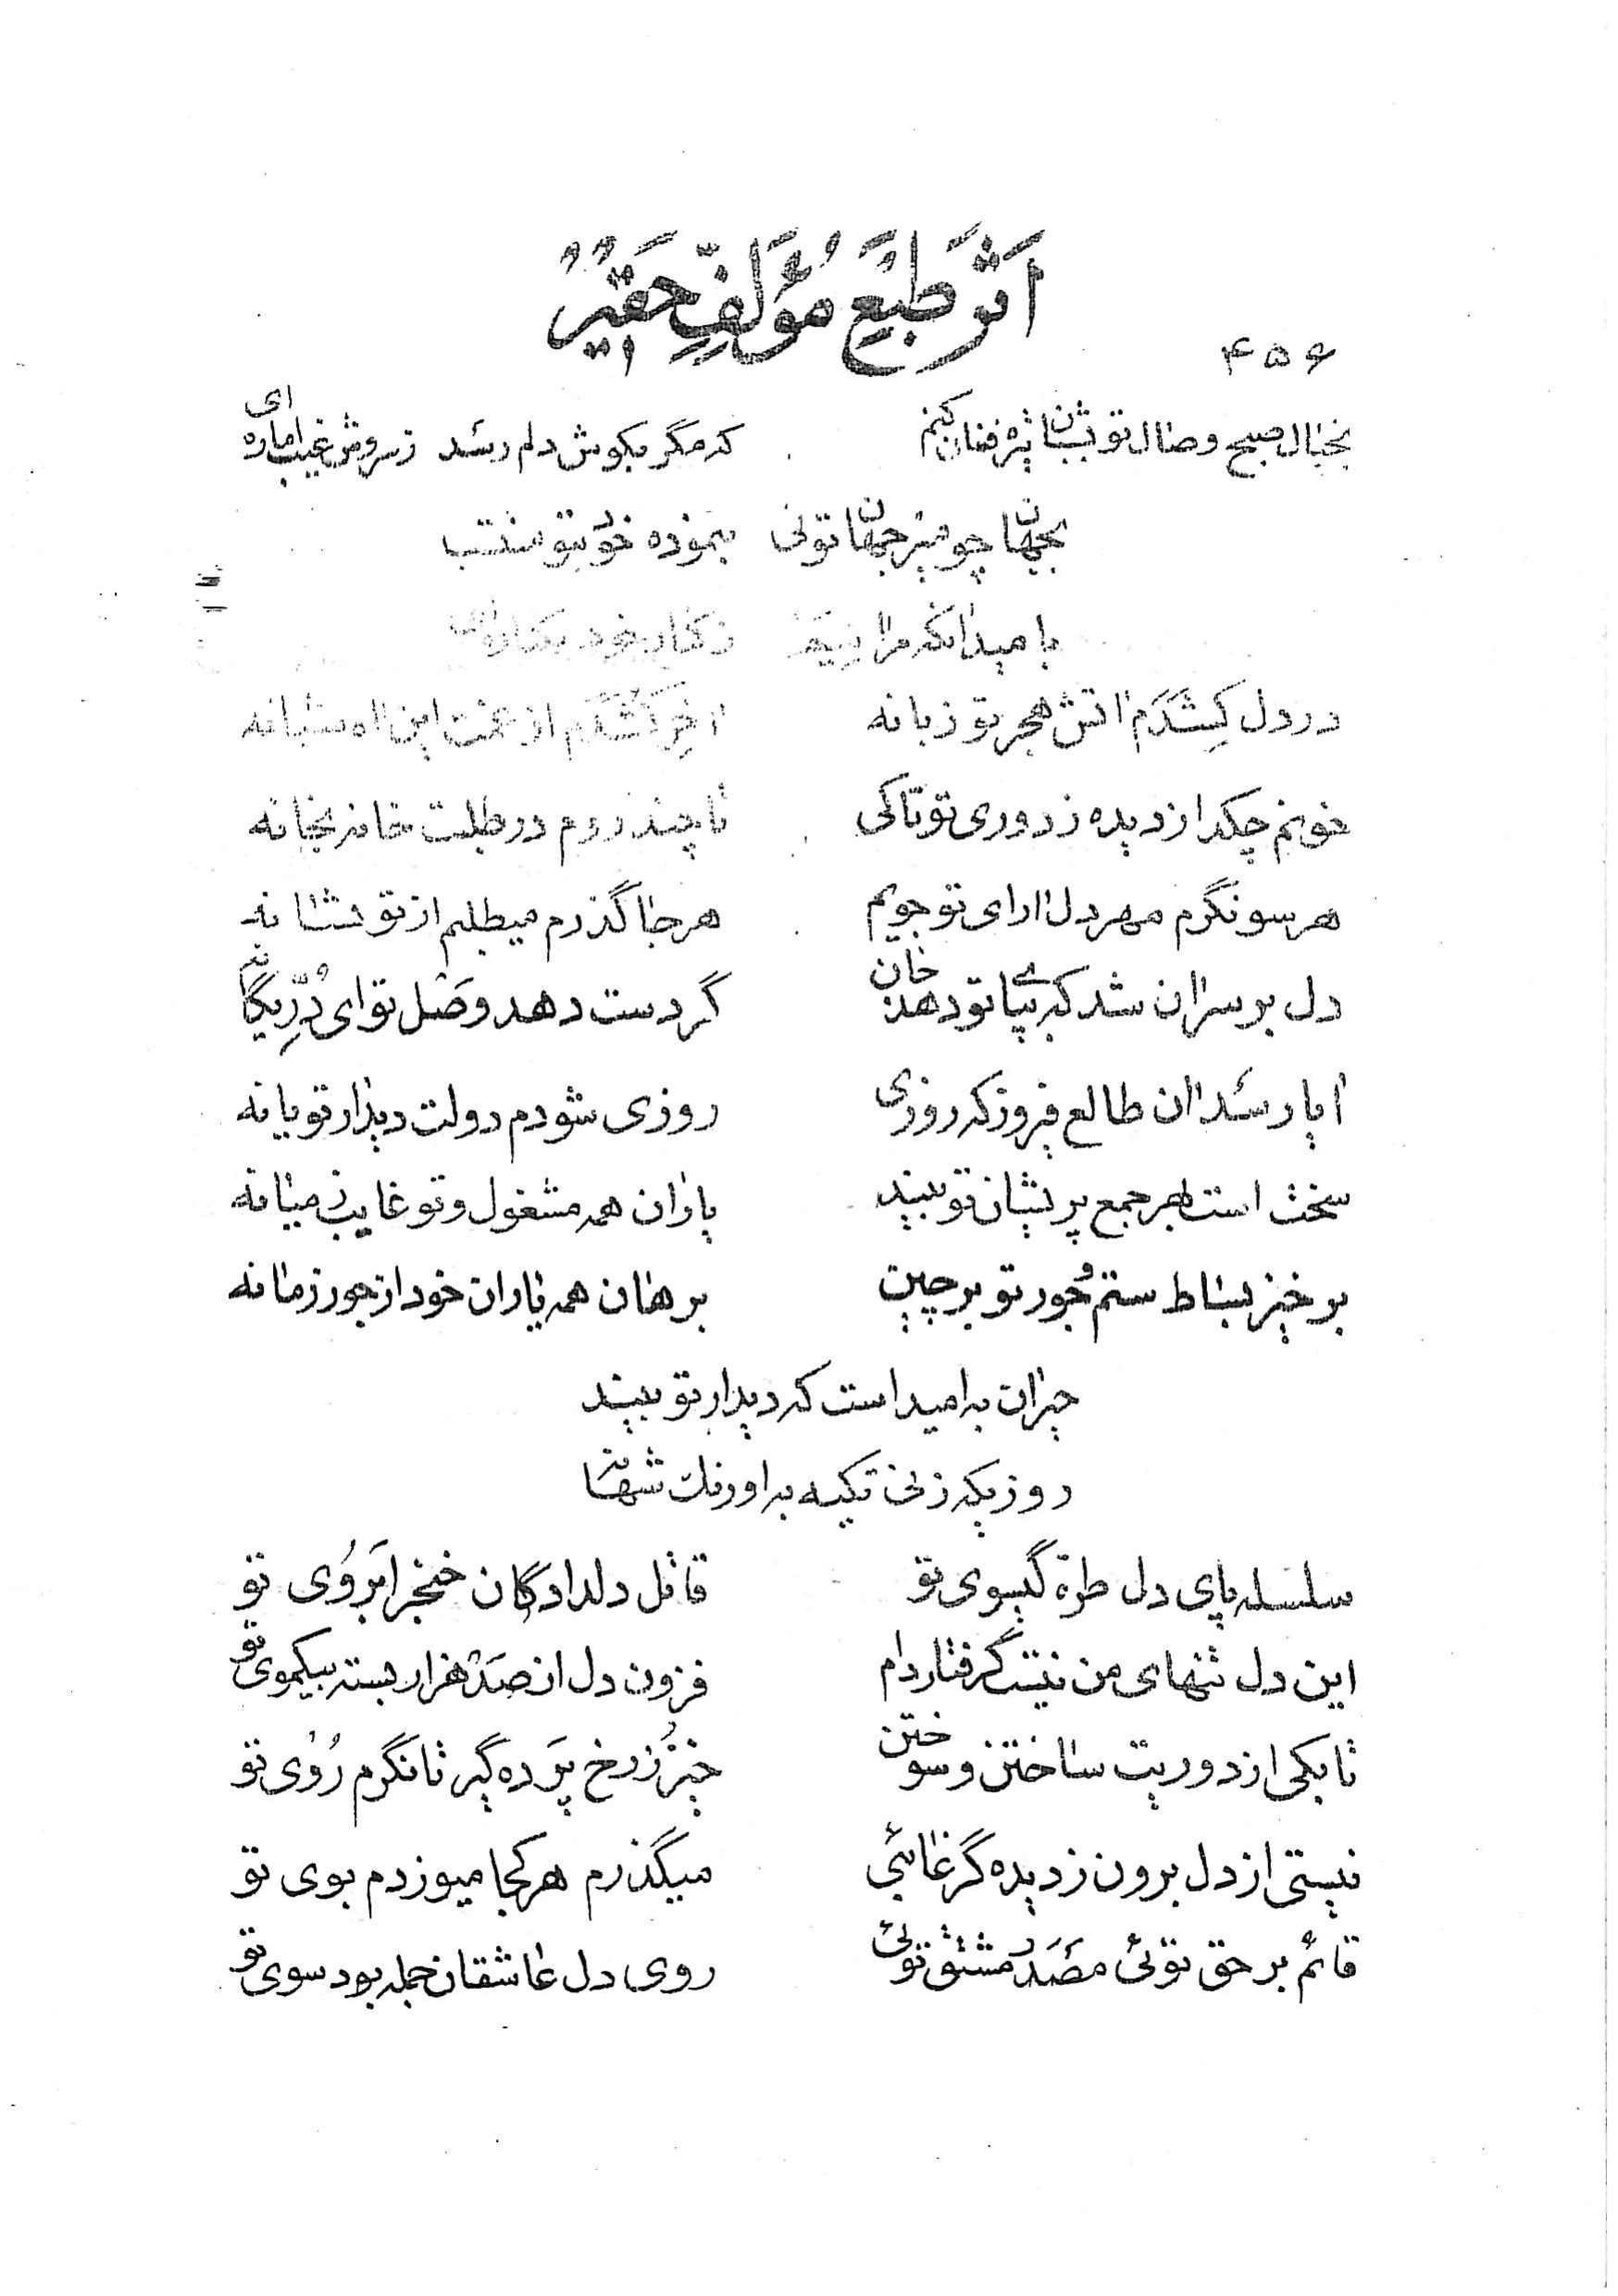 اَثَر طَبْعِ مُؤَلِّفِ حَقیرْ
۴۵۶
بخیال صبح وصال تو بشبان تیره فغان کنم که مگر بگوش دلم رسد ز سروش غیب اماره ای
بجهان چو میر جهان توئی بنموده خود بتو منتسب
بامید انکه مرا ز کار خود
در دل کِشَدَم اتش هجر تو زبانه اخر کُشَدَم از غمت این اه شبانه
خونم چکد از دیده ز دوری تو تا کی تا چند روم در طلبت خانه بخانه
هر سو نگرم مهر دل ارای تو جویم هر جا گذرم میطلبم از تو نشانه
دل بر سر ان شد که بپا تو دهد جان گر دست دهد وصْل تو ای دُرِّ یگانه
ایا رسد ان طالع فیروز که روزی روزی شودم دولت دیدار تو یا نه
سخت است بهر جمع پریشان تو ببیند یاران همه مشغول و تو غایب ز میانه
برخیز بساط ستم و جور تو برچین برهان همه یاران خود از جور زمانه
حیران به امید است که دیدار تو ببیند
روزیکه زنی تکیه به اورنک شهانه
سلسله پای دل طرهٔ گیسوی تو قاتل دلدادگان خنجر ابروُی تو
این دل تنهای من نیست گرفتار دام فزون دل از صد هزار بسته بیکموی تو
تا بکی از دوریت ساختن و سوختن خیز ز رخ پرده گیر تا نگرم رُوی تو
نیستی از دل برون ز دیده گر غائبی میگذرم هر کجا میوزدم بوی تو
قائم بر حق توئی مصْدَر مشتق توئی روی دل عاشقان جمله بود سوی تو